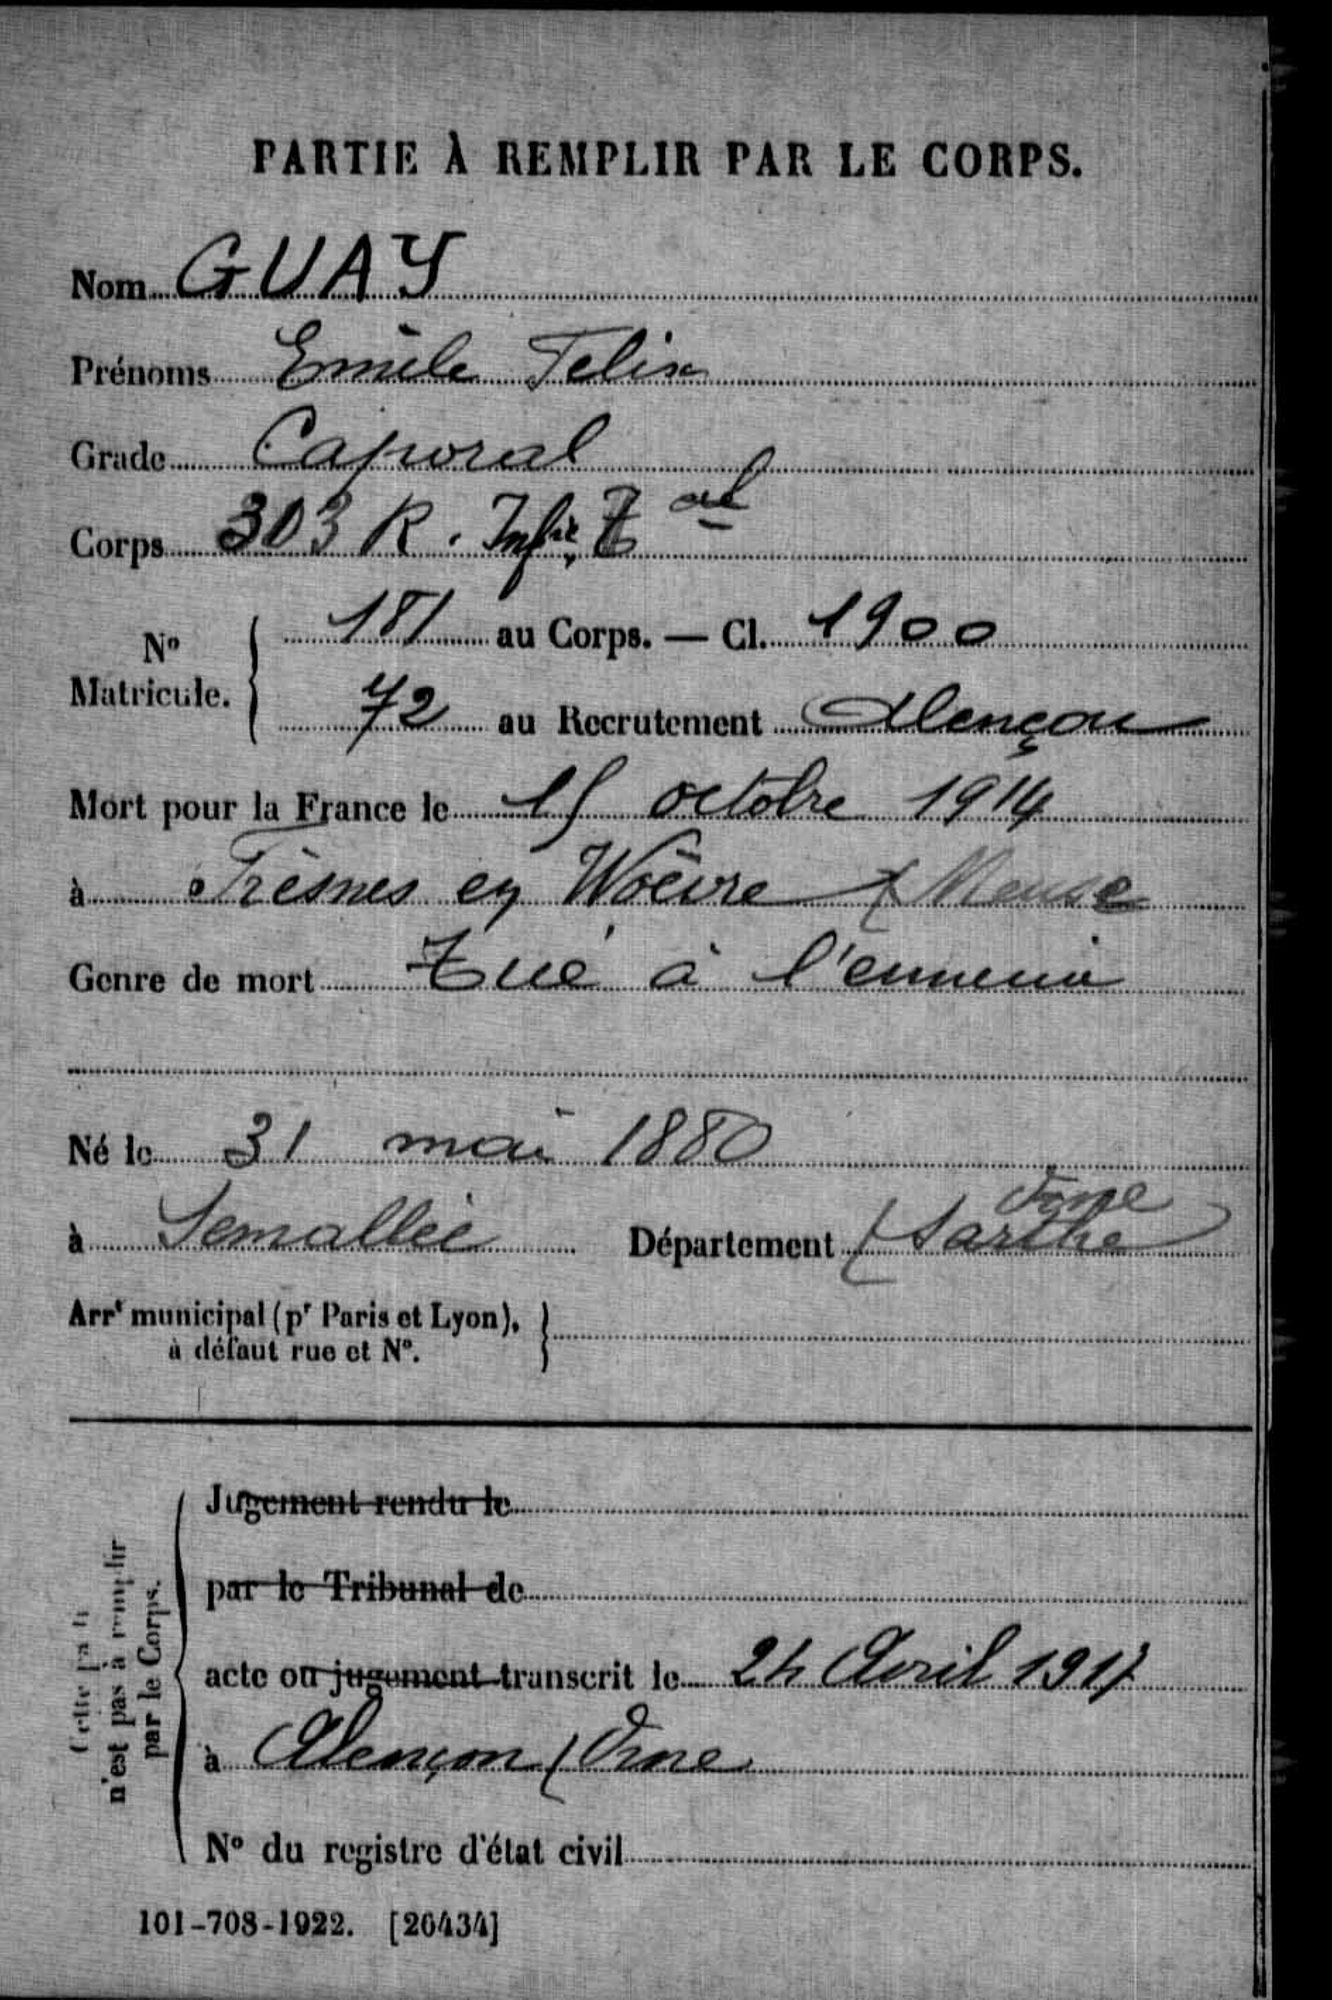 PARTIE À REMPLIR PAR LE CORPS.
Nom GUAY
Prénoms Emile Felix
Grade Caporal
Corps 303 R. Infie Tal
No Matricule. { 181 au Corps. — Cl. 1900
72 au Recrutement Alençon
Mort pour la France le 15 octobre 1914
à Fresnes en Woëvre (Meuse
Genre de mort Tué à l'ennemi
Né le 31 mai 1880
à Semallée Département (Sarthe) Orne
Arrt municipal (pr Paris et Lyon), à défaut rue et No. }
Cette partie n'est pas à remplir par le Corps.
Jugement rendu le
par le Tribunal de
acte ou jugement transcrit le 24 Avril 1917
à Alençon (Orne
No du registre d'état civil
101-708-1922. [26434]